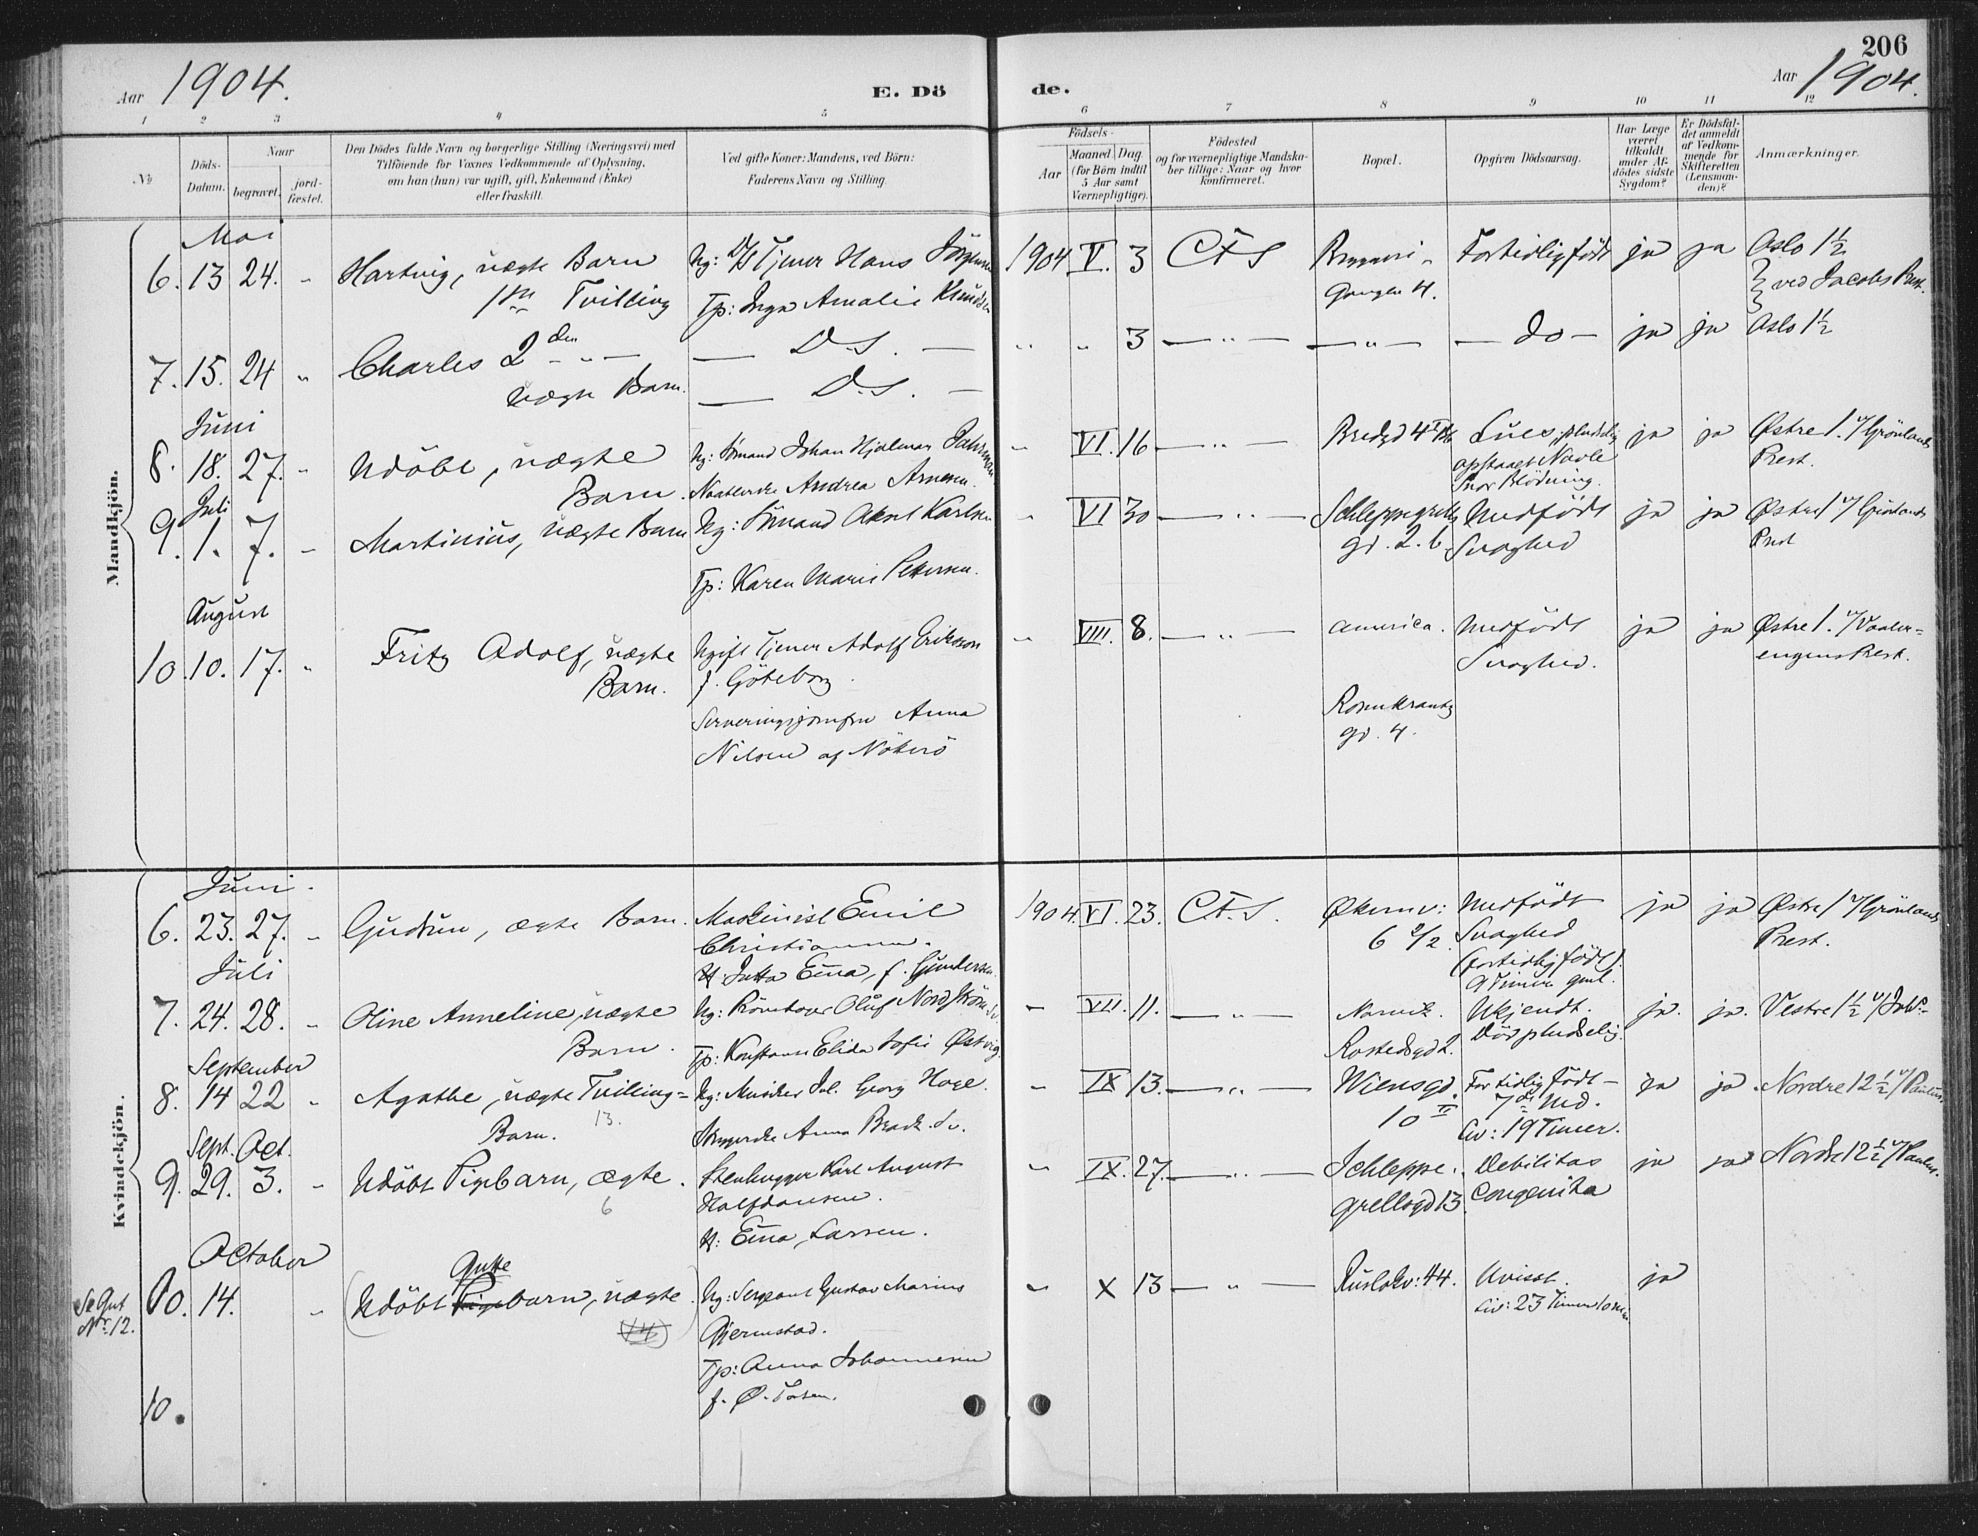 206
Aar 1904.
E. Dö
de.
Aar 1904.
1 2 3 4 5 6 7 8 9 10 11 12
No
Döds-
Datum.
Naar
begravet.
jord-
fæstet.
Den Dödes fulde Navn og borgerlige Stilling (Næringsvei) med
Tilföiende for Voxnes Vedkommende af Oplysning,
om han (hun) var ugift, gift, Enkemand (Enke)
eller fraskilt.
Ved gifte Koner: Mandens, ved Börn:
Faderens Navn og Stilling.
Födsels-
Aar
Maaned Dag
(for Börn indtil
5 Aar samt
Værnepligtige).
Födested
og for værnepligtige Mandska-
ber tillige: Naar og hvor
konfirmeret.
Bopæl.
Opgiven Dödsaarsag.
Har Læge
været
tilkaldt
under Af-
dödes sidste
Sygdom?
Er Dödsfal-
det anmeldt
af Vedkom-
mende for
Skifteretten
(Lensman-
den)?
Anmærkninger.
Mandkjön.
Mai
6. 13 24. Hartvig, uægte Barn
Tvilling
Ug: Tjener Hans
Tp: Inga Amalie
1904 V. 3 CFS
Gangen 4.
Fortidligfødt ja ja Oslo 1½
ved Jacobs Prest.
7. 15. 24 " Charles 2den — " —
uægte Barn.
— D.S. —
— D.S. —
" " 3 — " — — " — — do — ja ja Oslo 1½
Juni
8. 18. 27. Udöbt, uægte
Barn.
Ug: Sömand Johan Hjalmar
Andrea Arnesen.
" VI. 16 — " — Bredgd 4 Lues, pludselig
opstaaet Navle
Snor Blödning.
ja ja Østre 1. v/Grönlands
Prest.
Juli
9. 1. 7. Martinius, uægte Barn
Ug: Sömand Aksel Karlsen
Tp: Karen Marie Petersen.
" VI 30 — " — Schleppegrells
gd. 2. b.
Medfødt
Svaghed
ja ja Østre 1 v/Grönlands
Prest
August
10. 10. 17. " Fritz Adolf, uægte
Barn.
Ugift Tjener Adolf Eriksson
f. Göteborg.
Serveringsjomfru Anna
Nilsen af Nöterö
" VIII. 8. — " — America. Medfødt
Svaghed.
Rosenkrantz
gd. 4.
ja ja Østre 1. v/Vaaler-
engens Prest.
Kvindekjön.
Juni.
6. 23. 27. Gudrun, ægte Barn.
Maskinist Emil
Christiansen.
H: Jutta Elina, f. Gundersen.
1904. VI. 23. C.F.S. Økernv:
6 2/2.
Medfødt
Svaghed
(fortidlig født)
9 Timer gml.
ja ja Østre 1 v/Grönlands
Prest.
Juli
7. 24. 28. Oline Anneline, uægte
Barn.
Ug: Oluf Nordström. Sv.
Tp: Elida Sofie Østvig
" VII. 11. — " — Narvik.
Rostedsgd 2.
Ukjendt.
Död pludselig.
ja. ja. Vestre 1½ v/Joh.
September
8. 14 22 Agathe, uægte Tvilling-
Barn. 13.
Ug: Musiker Jul. Georg Hoge.
Anna Sv.
" IX 13. — " — Wiensgd.
10 II
For tidlig født —
7de Md.
Liv: 19 Timer.
ja ja. Nordre 12½ v/Paulus.
Sept. Oct.
9. 29. 3. Udöbt Pigebarn, ægte.
6
Stenhugger Karl August
Halfdansen.
H: Elina Larsen.
" IX. 27. — " — Schleppe-
grellsgd 13.
Debilitas
congenita
ja ja Nordre 12½ v/Paulus.
October
Se Gut
Nr. 12.
10. 14. (Udöbt Pigebarn, uægte)
Gutte
(14)
Ug: Sergeant Gustav Marius
Gjermstad.
Tp: Anna Johannesen
f. Ø. Toten.
" X 13 — " — Rusløkv: 44. Uvisst.
Liv: 23 Timer 10 min
ja
10.